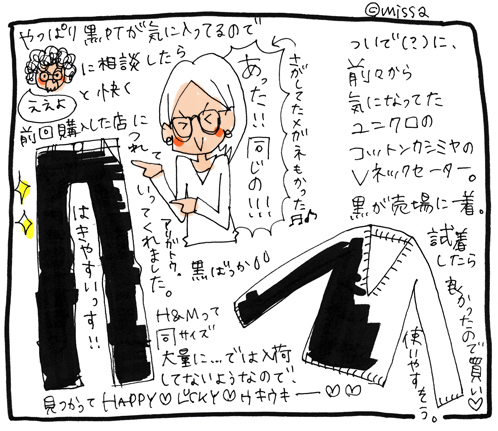 ©missa
やっぱり黒PTが気に入ってるので
に相談したら
ええよ
と快く
前回購入した店に
つれて
いってくれました。
アリガトウ。
はきやすいっす!!
あった!!
同じの!!!
さがしてたメガネもかった♬♪
黒ばっか
H&Mって
同サイズ
大量に…では入荷
してないようなので!
見つかってHAPPY♡LUCKY♡ウキウキー♡♡
ついで(?)に、
前々から
気になってた
ユニクロの
コットンカシミヤの
Vネックセーター。
黒が売場に一着。
試着
したら
良かったので買い♡
使いやすそう。